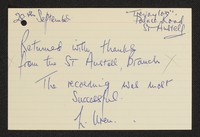 20th September
"Tregayles"
Palace Road
St Austell
Returned with thanks
from the St Austell Branch
The recording was most
successful
L.